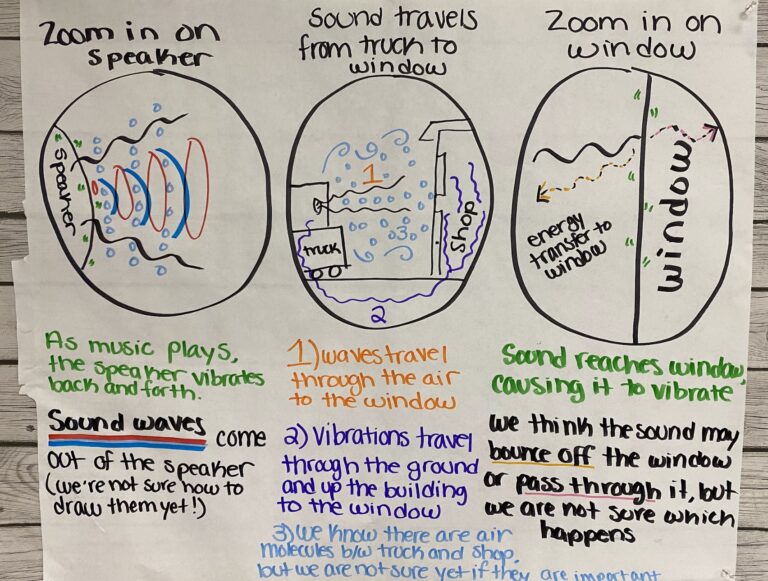 Zoom in on
Speaker
Speaker
As music plays,
the speaker vibrates
back and forth.
Sound waves come
out of the speaker
(we're not sure how to
draw them yet!)
Sound travels
from truck to
window
1
3
truck
Shop
2
1) waves travel
through the air
to the window
2) Vibrations travel
through the ground
and up the building
to the window
3) we know there are air
molecules b/w truck and shop.
but we are not sure yet if they are important
Zoom in on
window
energy
transfer to
window
window
Sound reaches window,
causing it to vibrate
we think the sound may
bounce off the window
or pass through it, but
we are not sure which
happens